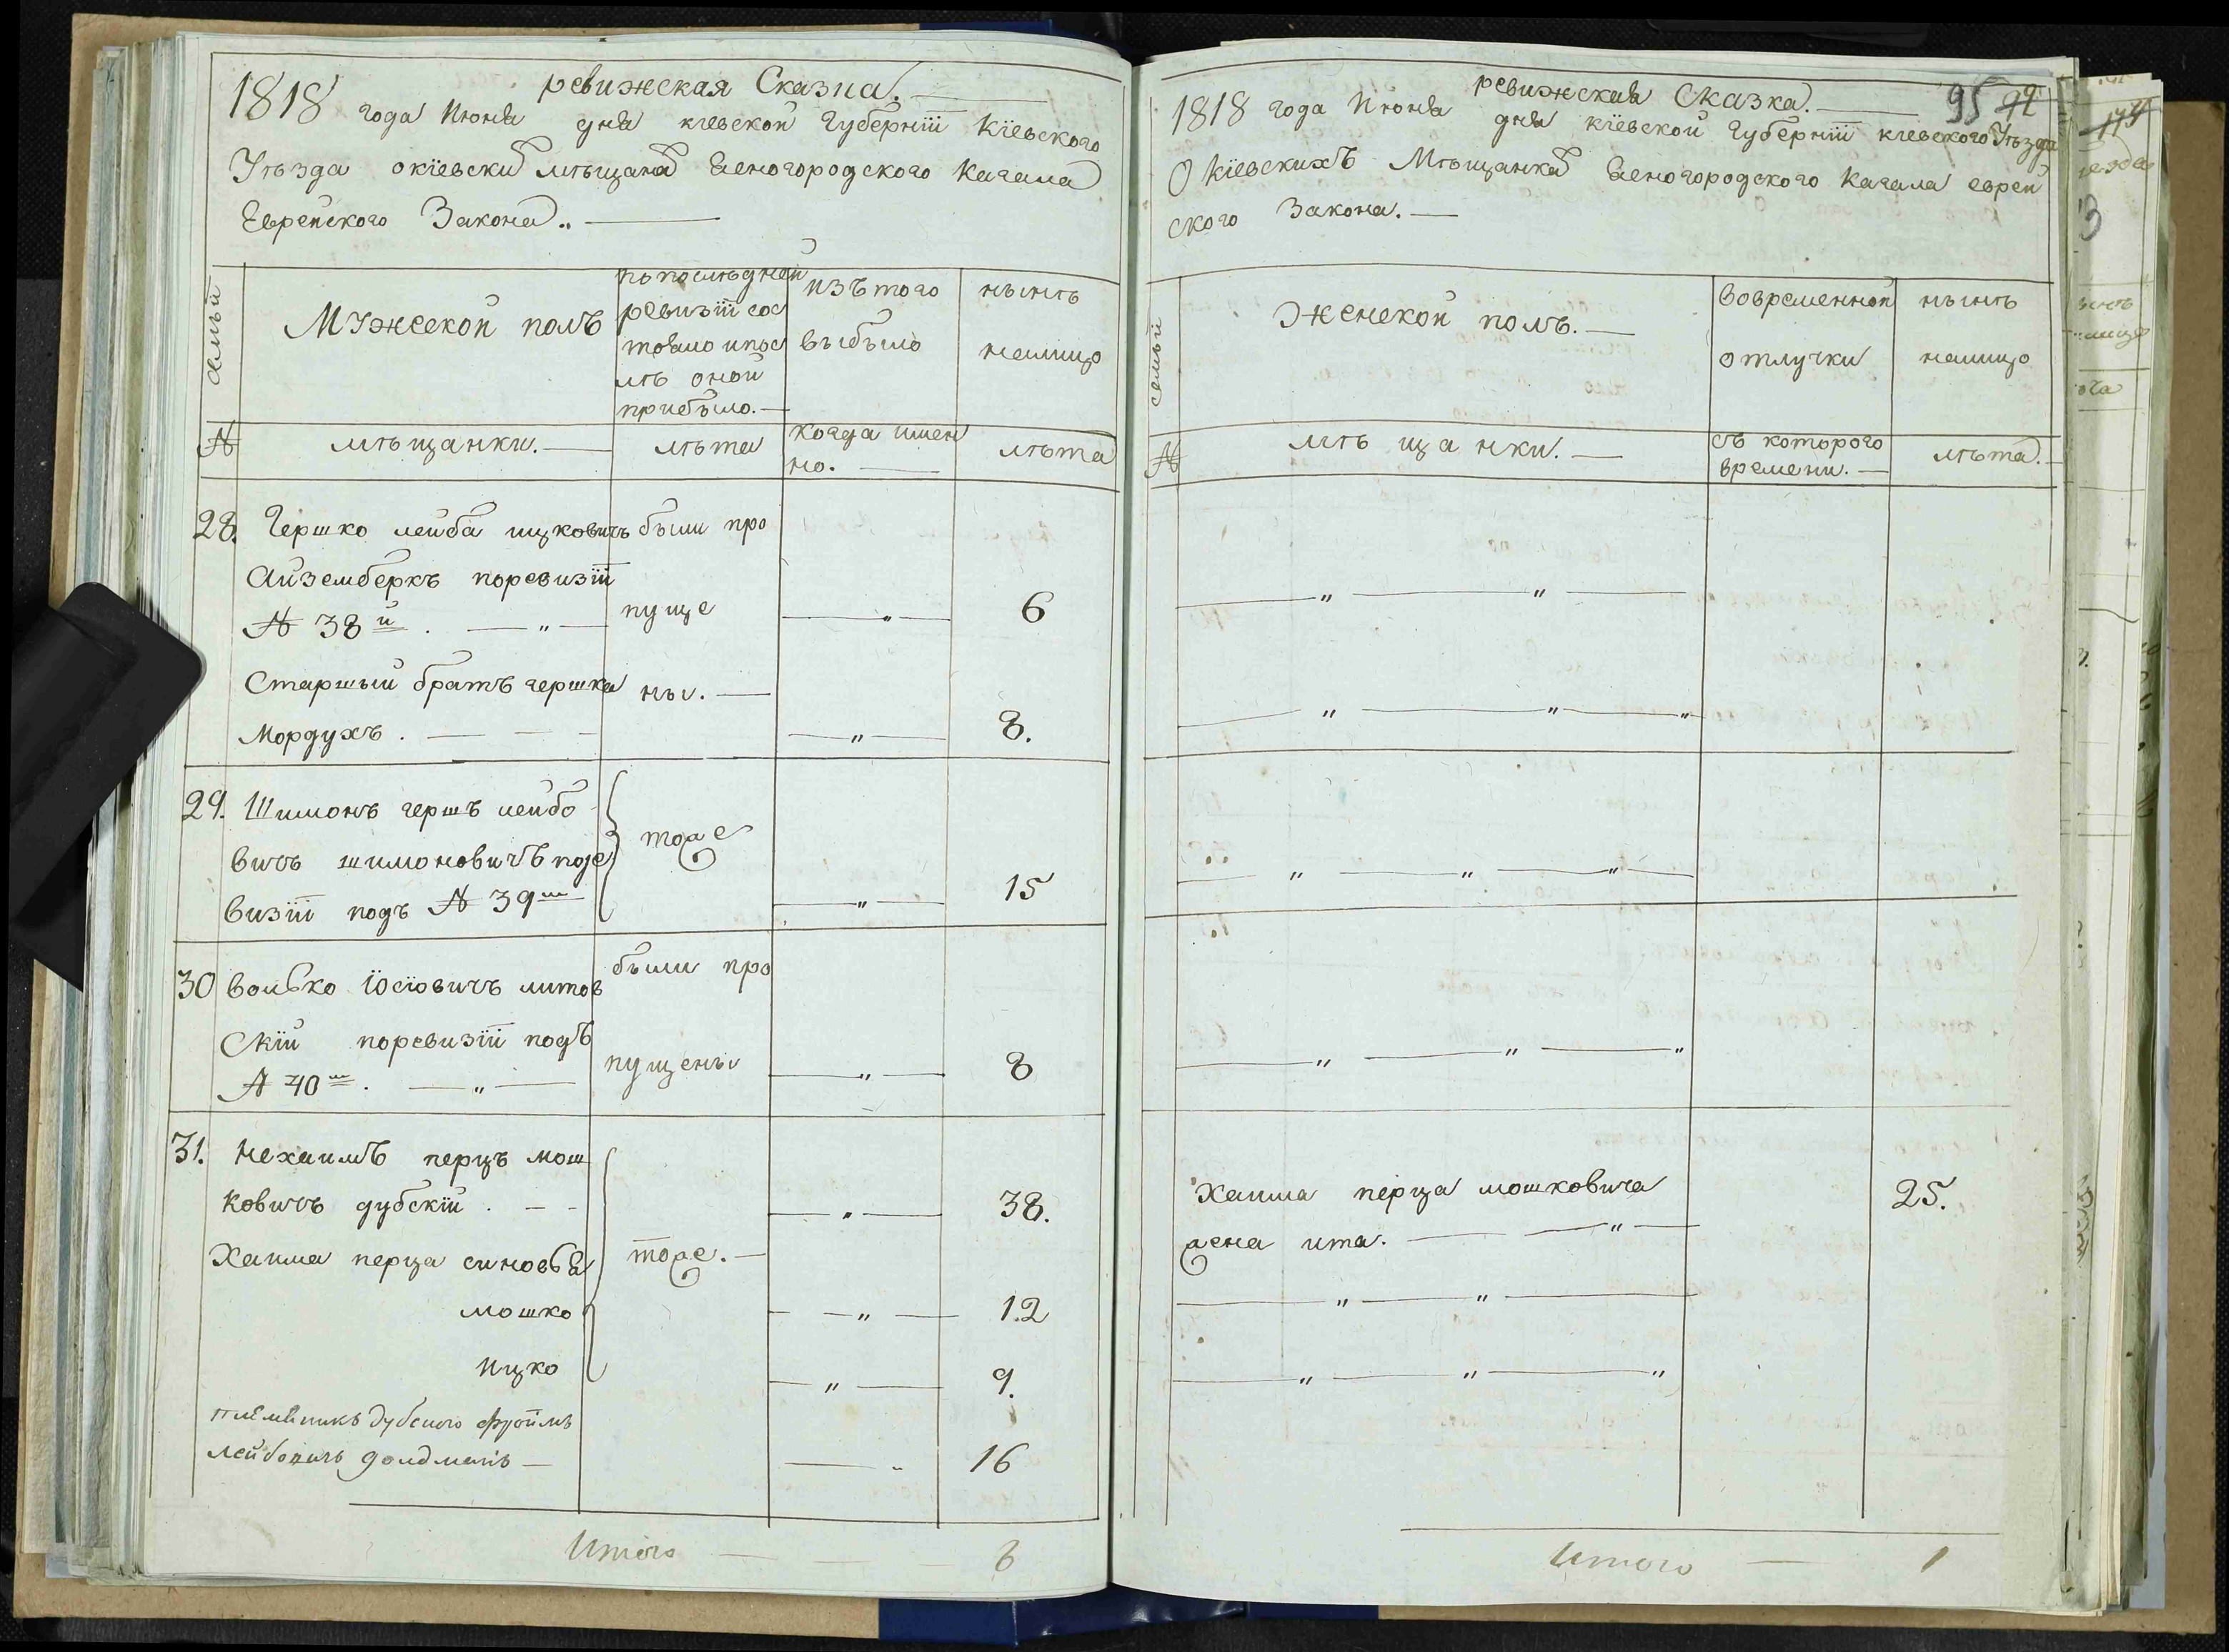 ревижская Сказка.
1818 года Июня дня кіевской Губерніи Кіевского
Уѣзда окіевски мѣщана Беногородского Кагала
Еврейского Закона..
семьи
Мужеской полъ
по последней
ревизіи сос
тояло ипос
лѣ оной
прибыло.
изъ того
выбыло
нынѣ
налицо
№
мѣщанки.
лѣта
когда имен
но.
лѣта
28. Гершко лейба ицковичъ были про
Айземберкъ поревизіи
№ 38й. — " —
пуще
6
Старшый братъ гершка
ны.
Мордухъ.
8.
29. Шимонъ гершъ лейбо
вичъ шимоновичъ поре
визіи подъ № 39
тоже
15
30 волько Іосіовичъ литов
были про
скій поревизіи подъ
№ 40.
пущены
8
31. Нехаимъ перцъ мош
ковичъ дубскій.
38.
Хаима перца синовья
тоже.
мошко
12
Ицко
9.
племѣникъ Дубского Фроимъ
лейбовичъ Голдманъ —
16
Итого — 6
95 92
ревижская Сказка.
1818 года Июня дня кіевской Губерніи кіевского Уѣзда
О Кіевскихъ Мѣщанка Беногородского Кагала еврей
ского Закона.
семьи
Женской полъ.
вовременной
отлучки
нынѣ
налицо
№
мѣщанки.
съ которого
времени.
лѣта.
Хаима перца мошковича
25.
жена ита.
Итого — 1